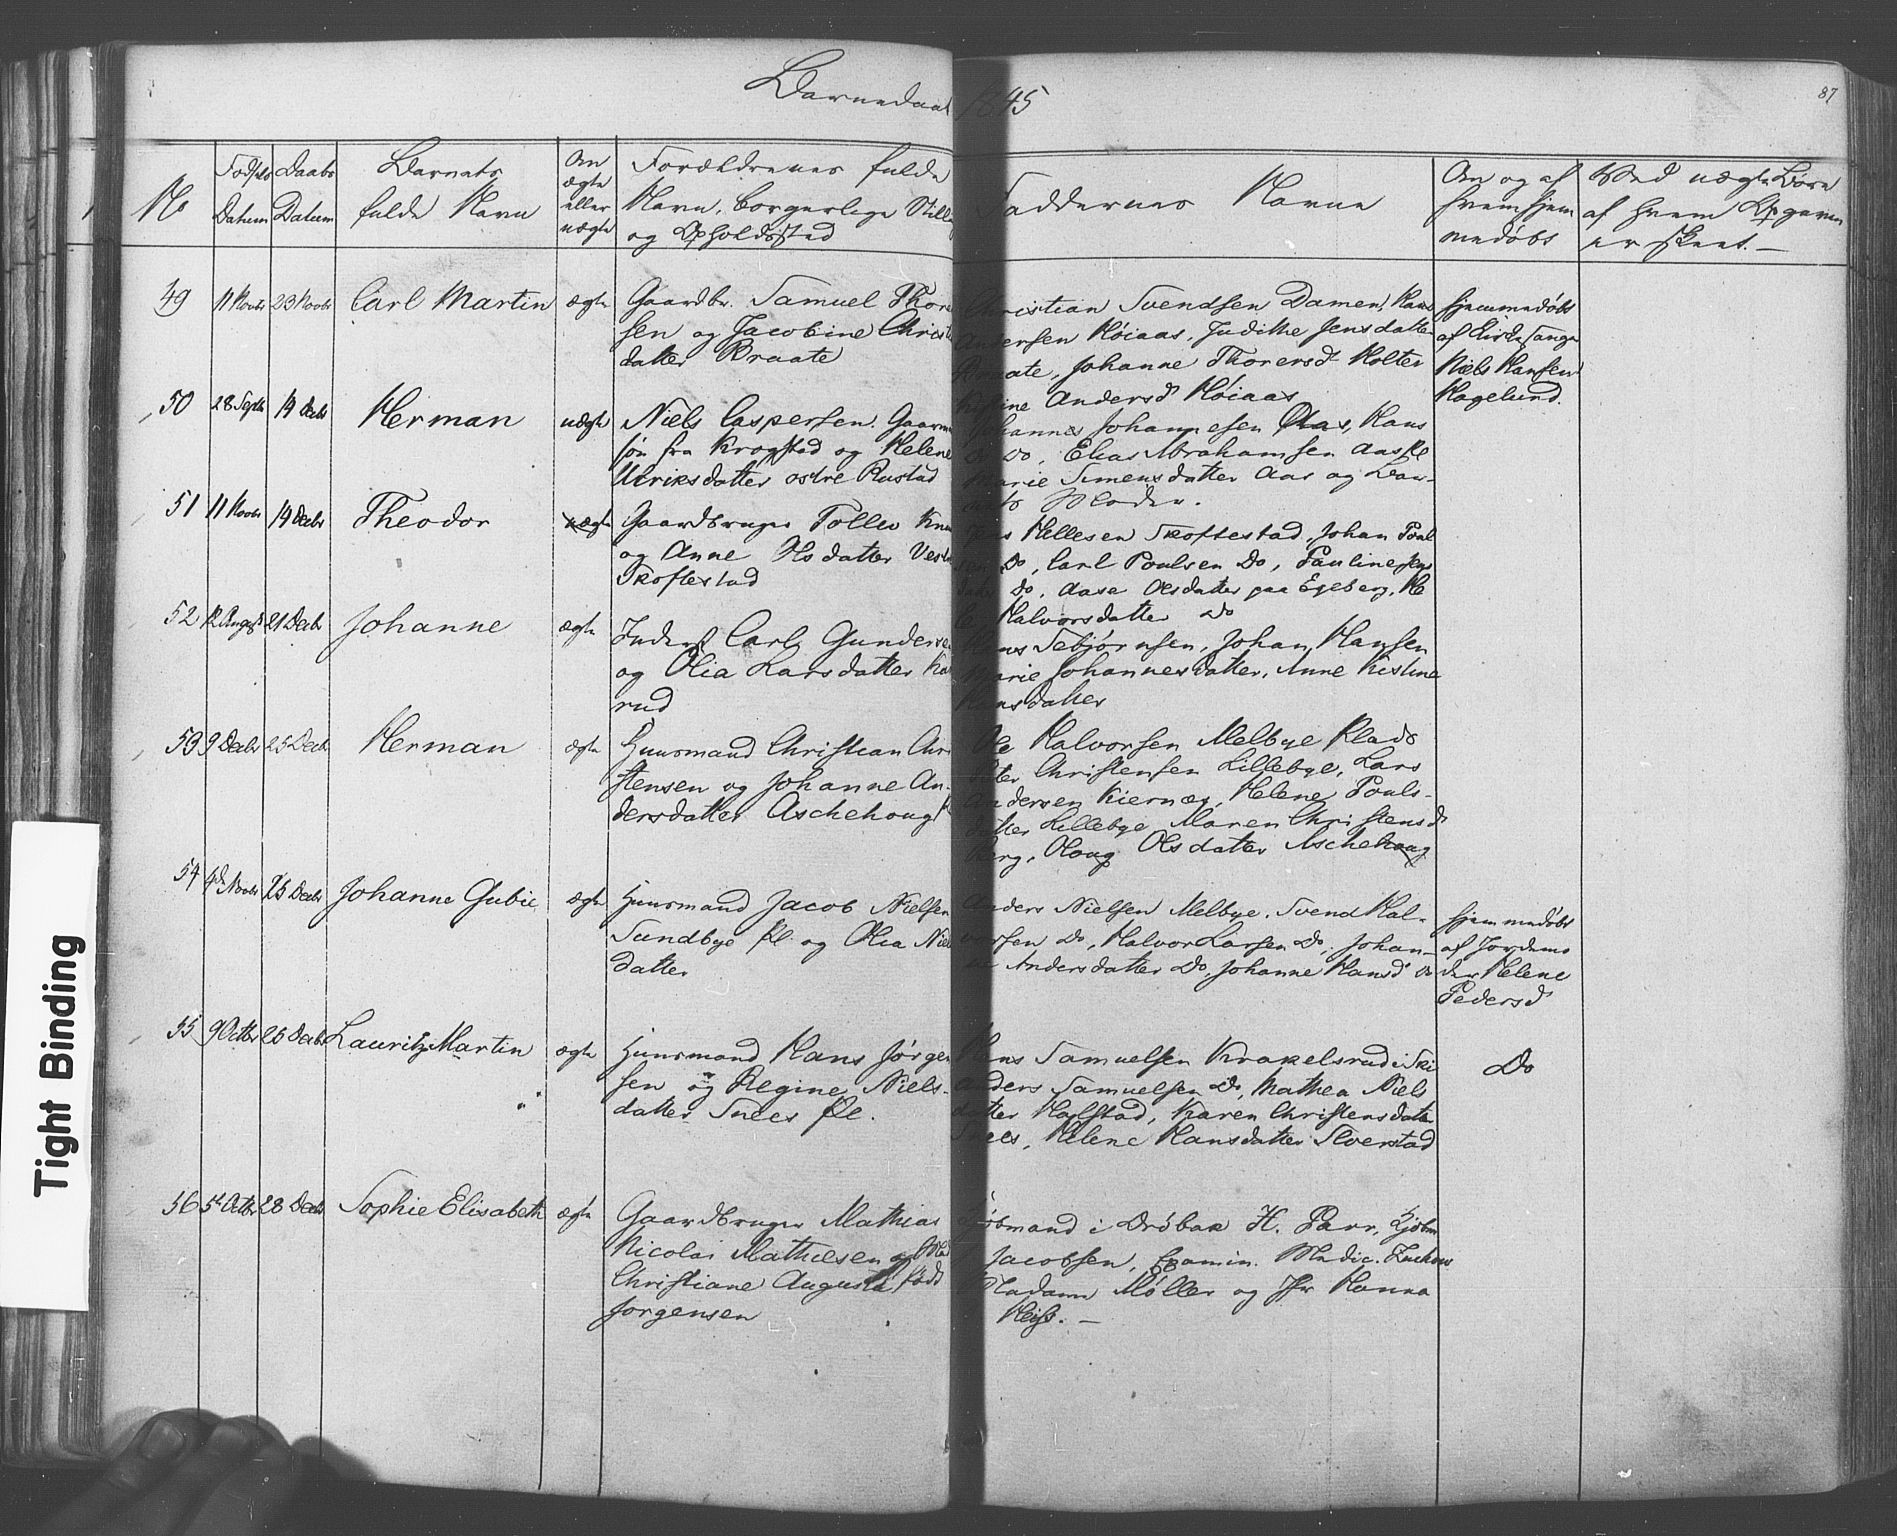 Barnedaab 1845
87
No
Fødsels Datum
Daabs Datum
Barnets fulde Navn
Om ægte eller uægte
Forældrenes fulde Navn, borgerlige Stilling og Opholdssted
Faddernes Navne
Om og af hvem hjemmedøbt
Ved uægte Børn af hvem Opgaven er skeet. —
49 11 Novbr 23 Novbr Carl Martin ægte
Gaardbr. Samuel Thor
sen og Jacobine Christ
datter Braate
Christian Svendsen Damen, Hans
Andersen Høiaas, Judithe Jensdatter
Braate, Johanne Thorersd Holter
Andersd Høiaas
hjemmedøbt
af Kirkesanger
Niels Hansen
Hagelund.
50 28 Septb 14 Decbr Herman uægte
Niels Caspersen. Gaarm
søn fra Krogstad og Helene
Ulriksdatter østre Rustad
Johannes Johannesen Aas, Hans
Do Do, Elias Abrahamsen Aas
Marie Simensdatter Aas og Bar-
nets Moder.
51 11 Novbr 14 Decbr Theodor uægte
Gaardbruger Tollev Knu
og Anne Olsdatter Vest
Skoftestad
Hellesen Skoftestad, Johan Poul
sen Do, Carl Poulsen Do, Pauline Jens
datter Do, Aase Olsdatter paa Egeberg,
Halvorsdatter Do
52 12 August 21 Decbr Johanne ægte
Inderst Carl Gunderse
og Olia Larsdatter
rud
Hans Tebjørnsen, Johan Hansen
Marie Johannesdatter, Anne Kistine
Hansdatter
53 9 Decbr 25 Decbr Herman ægte
Huusmand Christian Chri
stensen og Johanne An-
dersdatter Aschehoug
Ole Halvorsen Melbye Plads
Peter Christensen Lillebye, Lars
Andersen Kiernæs, Helene Pouls-
datter Lillebye Maren Christensd
Berg, Olsdatter Aschehoug
54 4de Novbr 25 Decbr Johanne Gubie ægte
Huusmand Jacob Nielsen
Sundbye Pl. og Olia Niels
datter
Anders Nielsen Melbye. Svend Hal-
vorsen Do, Halvor Larsen Do, Johan-
ne Andersdatter Do, Johanne Hansd Do
hjemmedøbt
af Jordemo
der Helene
Pedersd
55 9 Octbr 26 Decbr Lauritz Martin ægte
Huusmand Hans Jørgen
sen og Regine Niels-
datter Snees Pl.
Hans Samuelsen Krakelsrud i Ski
Anders Samuelsen Do, Mathea Niels
datter Halstad, Karen Christensdatter
Snees, Helene Hansdatter Sloerstad
Do
56 5t Octbr 28 Decbr Sophie Elisabeth ægte
Gaardbruger Mathias
Nicolai Mathiesen og Mad
Christiane Augusta født
Jørgensen
Kjøbmand i Drøbak H. Parr, Kjøbm
Jacobsen, Examin. Medic.
Madam Møller og Jfr Hanna
Heiss. —
Tight Binding